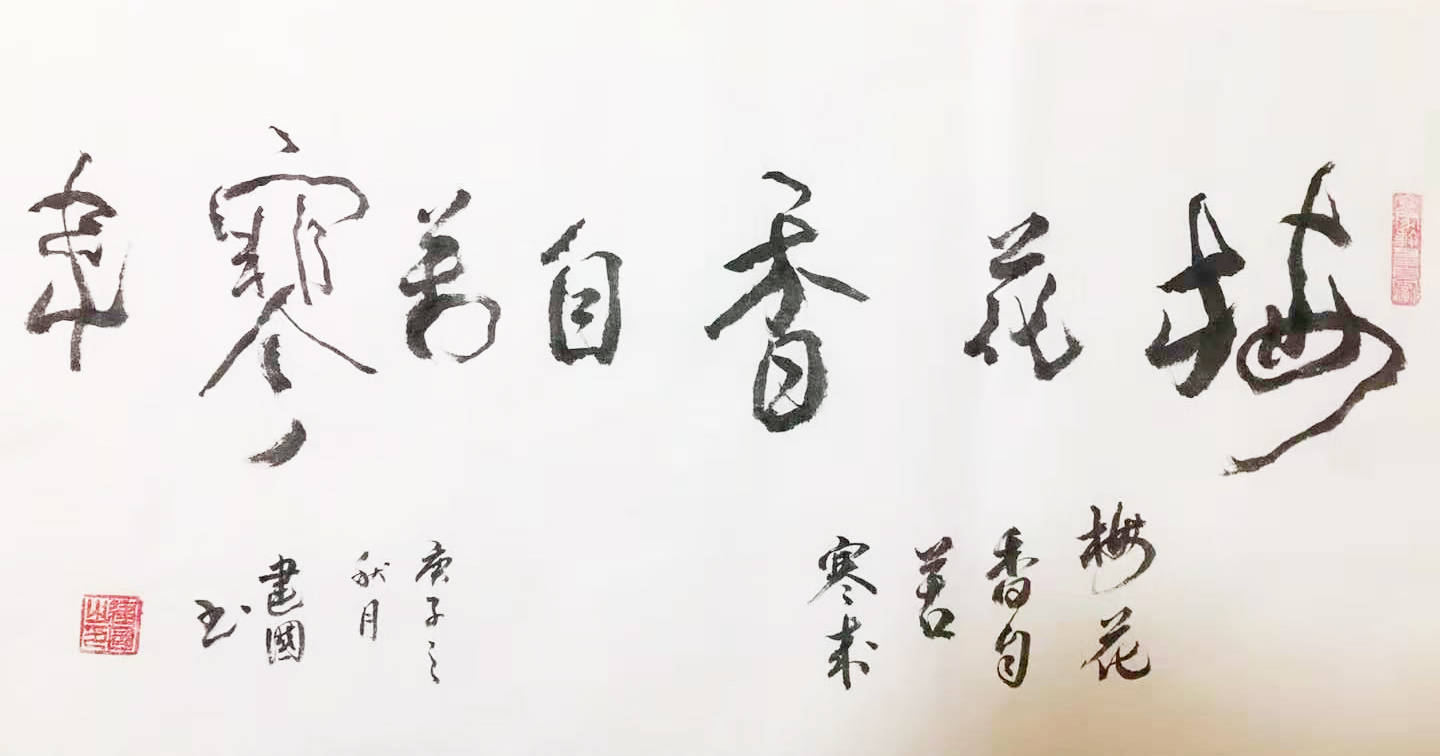 梅花香自苦寒来
梅花
香自
苦
寒来
庚子之
秋月
建国
书